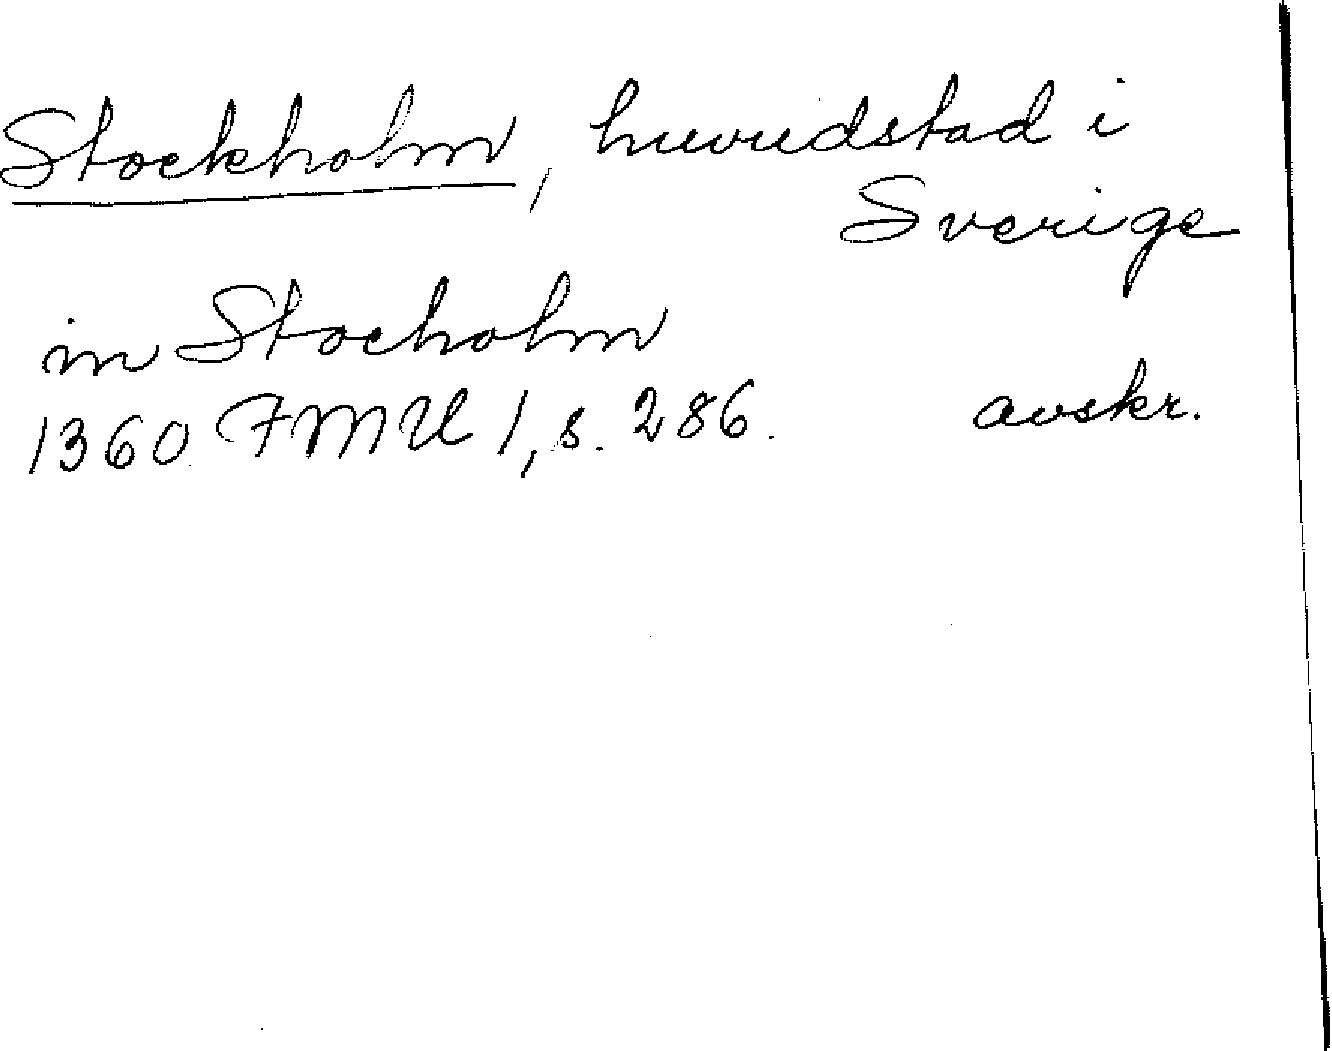 Stockholm, huvudstad i
Sverige
in Stocholm
1360 FMU 1, s. 286. avskr.